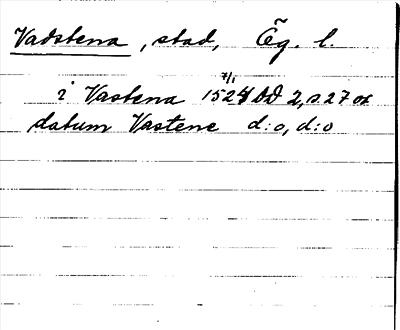 Vadstena, stad, Ög. l.
i Vastena 7/1 1524 DD 2, s. 27 or
datum Vastene d:o, d:o